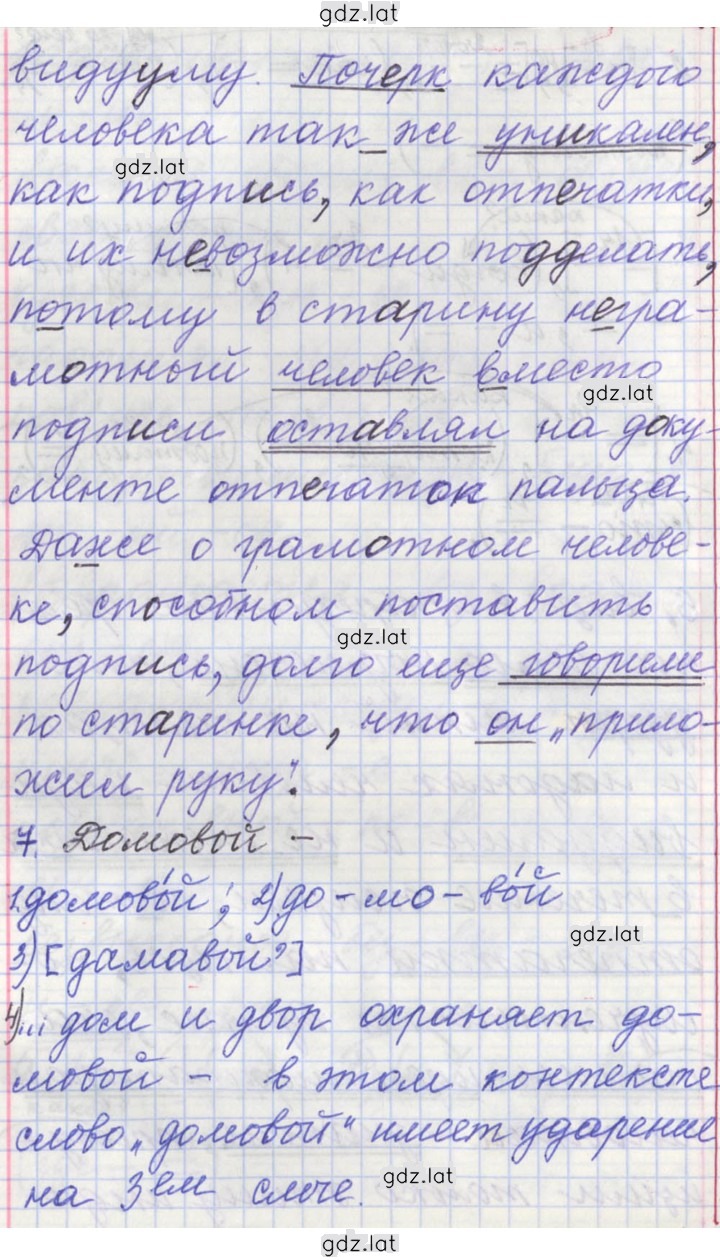 gdz.lat
видууму. Почерк каждого
человека так же уникален,
gdz.lat
как подпись, как отпечатки,
и их невозможно подделать,
потому в старину негра-
мотный человек вместо
gdz.lat
подписи оставлял на доку-
менте отпечаток пальца.
Даже о грамотном челове-
ке, способном поставить
gdz.lat
подпись, долго еще говорили
по старинке, что он „прило-
жил руку".
7. Домовой –
1.домово́й; 2)до-мо-во́й
gdz.lat
3) [дамавой']
4)... дом и двор охраняет до-
мовой – в этом контексте
слово „домовой" имеет ударение
на 3ем слоге.
gdz.lat
gdz.lat